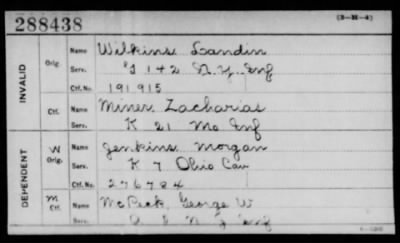 288438
(3-H-4)
INVALID
Orig. Name Wilkins Landin
Serv. I 142 N.Y. Inf
Ctf. No. 191 915
Ctf. Name Miner Zacharias
Serv. K 21 Mo Inf
DEPENDENT
W Orig. Name Jenkins Morgan
Serv. K 7 Ohio Cav
Ctf. No. 276784
M Ctf. Name McPeek George W
Serv. N J Inf